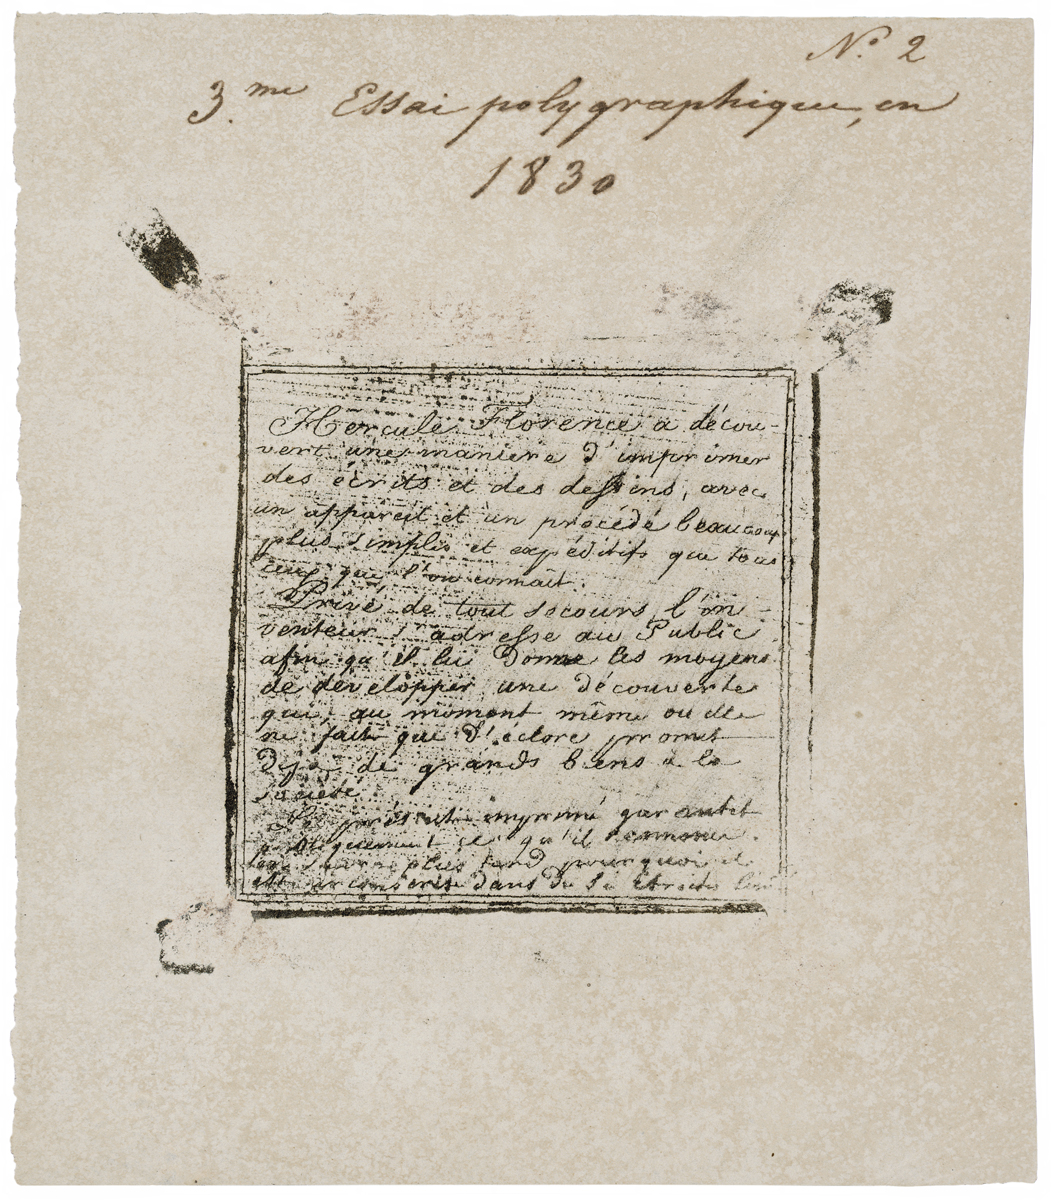 N.º 2
3.me Essai polygraphique, en
1830
Hercule Florence a décou-
vert une maniere d'imprimer
des écrits et des dessins, avec
un appareil et un procédé beaucoup
plus simples et expéditifs que tous
ceux que l'on connaît.
Privé de tout secours, l'in-
venteur s'adresse au Public
afin qu'il lui donne les moyens
de développer une découverte
qui, au moment même où elle
ne fait que d'éclore promet
déja de grands biens à la
société.
Le présent imprimé
ce qu'il annonce.
plus tard pourquoi il
est circonscrit dans de si étroites